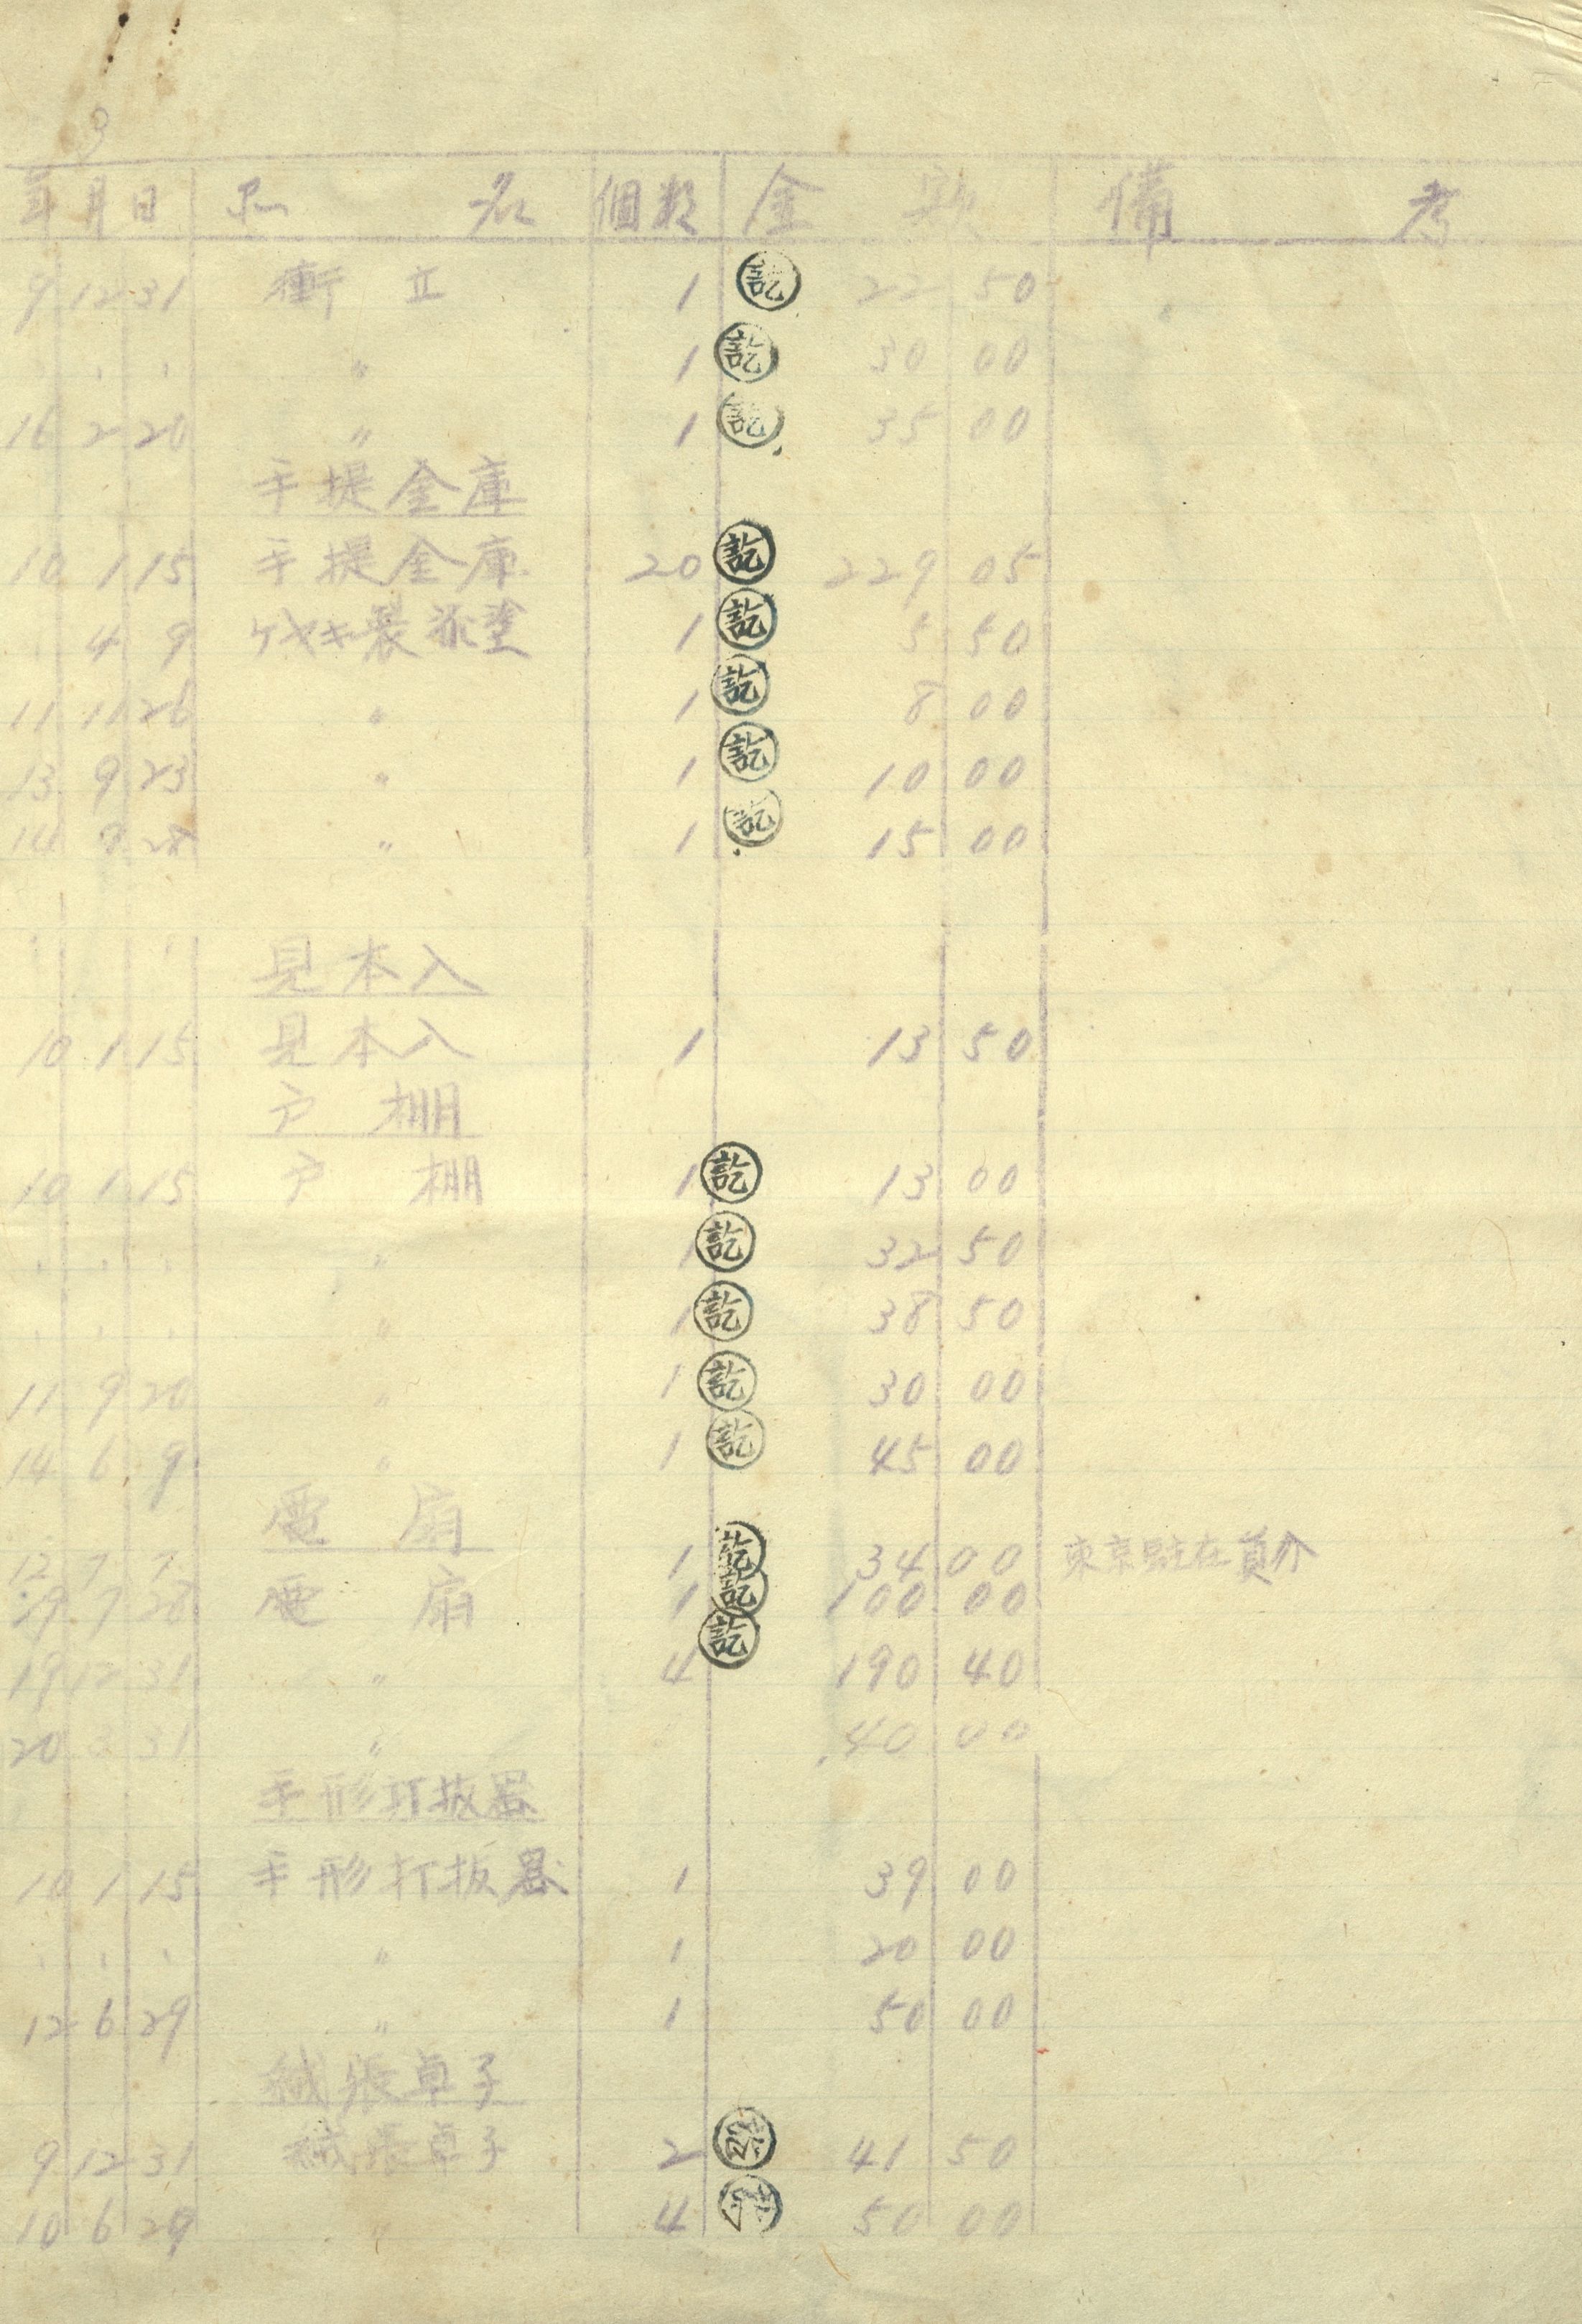 3
年 月 日 品名 個数 金額 備考
9 12 31 衝立 1 訖 22 50 〃
〃 1 訖 30 00
16 2 20 〃 1 訖 35 00
手提金庫
10 1 15 手提金庫 20 訖 229 05
4 9 ケヤキ製 塗 1 訖 5 50
11 11 26 〃 1 訖 8 00
13 9 23 〃 1 訖 10 00
14 28 〃 1 訖 15 00
見本入
10 1 15 見本入 1 13 50
戸棚
10 1 15 戸棚 1 訖 13 00
〃 1 訖 32 50
〃 1 訖 38 50
11 9 20 〃 1 訖 30 00
14 6 9 〃 1 訖 45 00
電扇
12 7 7 1 訖 34 00 東京駐在員分
19 7 28 電扇 1 訖 100 00
19 12 31 〃 4 訖 190 40
20 31 〃 40 00
手形打抜器
10 1 15 手形打抜器 1 39 00
〃 1 20 00
12 6 29 〃 1 50 00
絨張卓子
9 12 31 絨張卓子 2 訖 41 50
10 6 29 〃 4 50 00